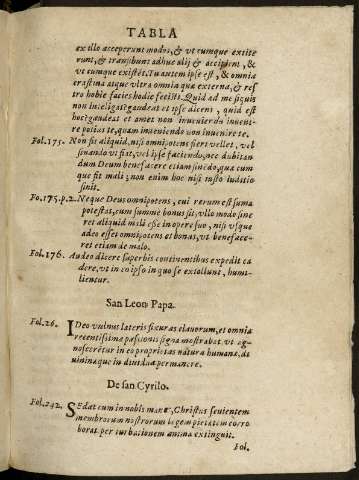 TABLA
ex illo acceperunt modos, & vt cumque extite
runt, & transibunt adhuc alij & accipient, &
vt cumque existet. Tu autem ipse est, & omnia
crastina atque vltra omnia quæ externa, & res
tro hodie facies hodie fecisti. Quid ad me siquis
non inteligat? gandeat et ipse dicens, quid est
hoc? gandeat et amet non inueniendo inueni-
re potius te, quam inueniendo non inuenire te.
Fol. 175. Non fit aliquid, nisi omnipotens fieri vellet, vel
sinuando vt fiat, vel ipse faciendo, nec dubitan
dum Deum benefacere etiam sinedo, quæ cum
que fit mali; non enim hoc nisi iusto iuditio
sinit.
Fo. 175. p. 2. Neque Deus omnipotens, cui rerum est suma
potestas, cum summe bonus sit, vllo modo sine
ret aliquid mali esse in opere suo, nisi vsque
adeo esset omnipotens et bonus, vt benefacce-
ret etiam de malo.
Fol. 176. Audeo dicere superbis continentibus expedit ca
dere, vt in eo ipso in quo se extollunt, humi-
lientur.
San Leon Papa.
Fol. 26. IDeo vulnus lateris fixuras clauorum, et omnia
recentissima passionis signa mostrabat. vt og-
noscerētur in eo proprietas naturæ humanæ, di
uininæque in diuidua permanere.
De san Cyrilo.
Fol. 242. SEdat cum in nobis manet, Christus seuientem
membrorum nostrorum legem pietatem corro
borat per turbationem animæ extinguit.
Fol.